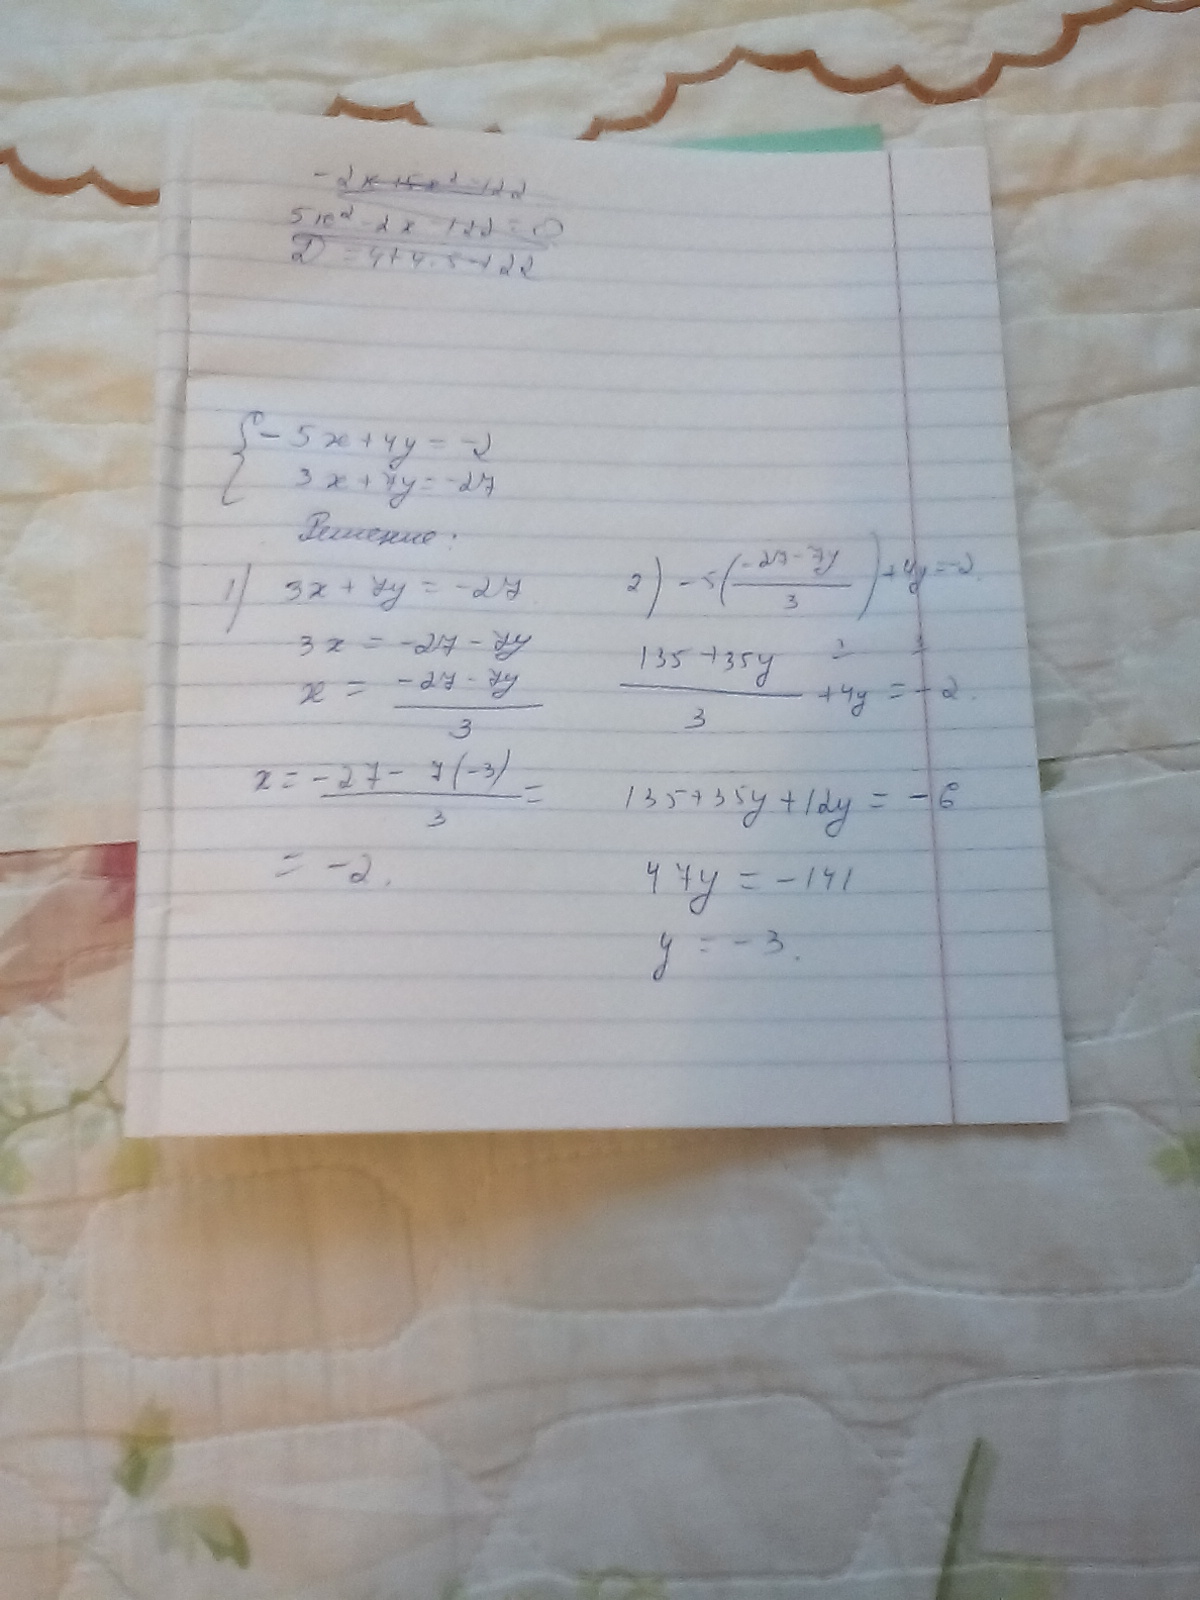 5x² - 2x - 122 = 0
{ - 5x + 4y = -2
3x + 7y = -27
Решение:
1) 3x + 7y = -27
3x = -27 - 7y
x = (-27 - 7y)/3
x = (-27 - 7(-3))/3 =
= -2.
2) -5((-27 - 7y)/3) + 4y = -2
(135 + 35y)/3 + 4y = -2.
135 + 35y + 12y = -6
47y = -141
y = -3.